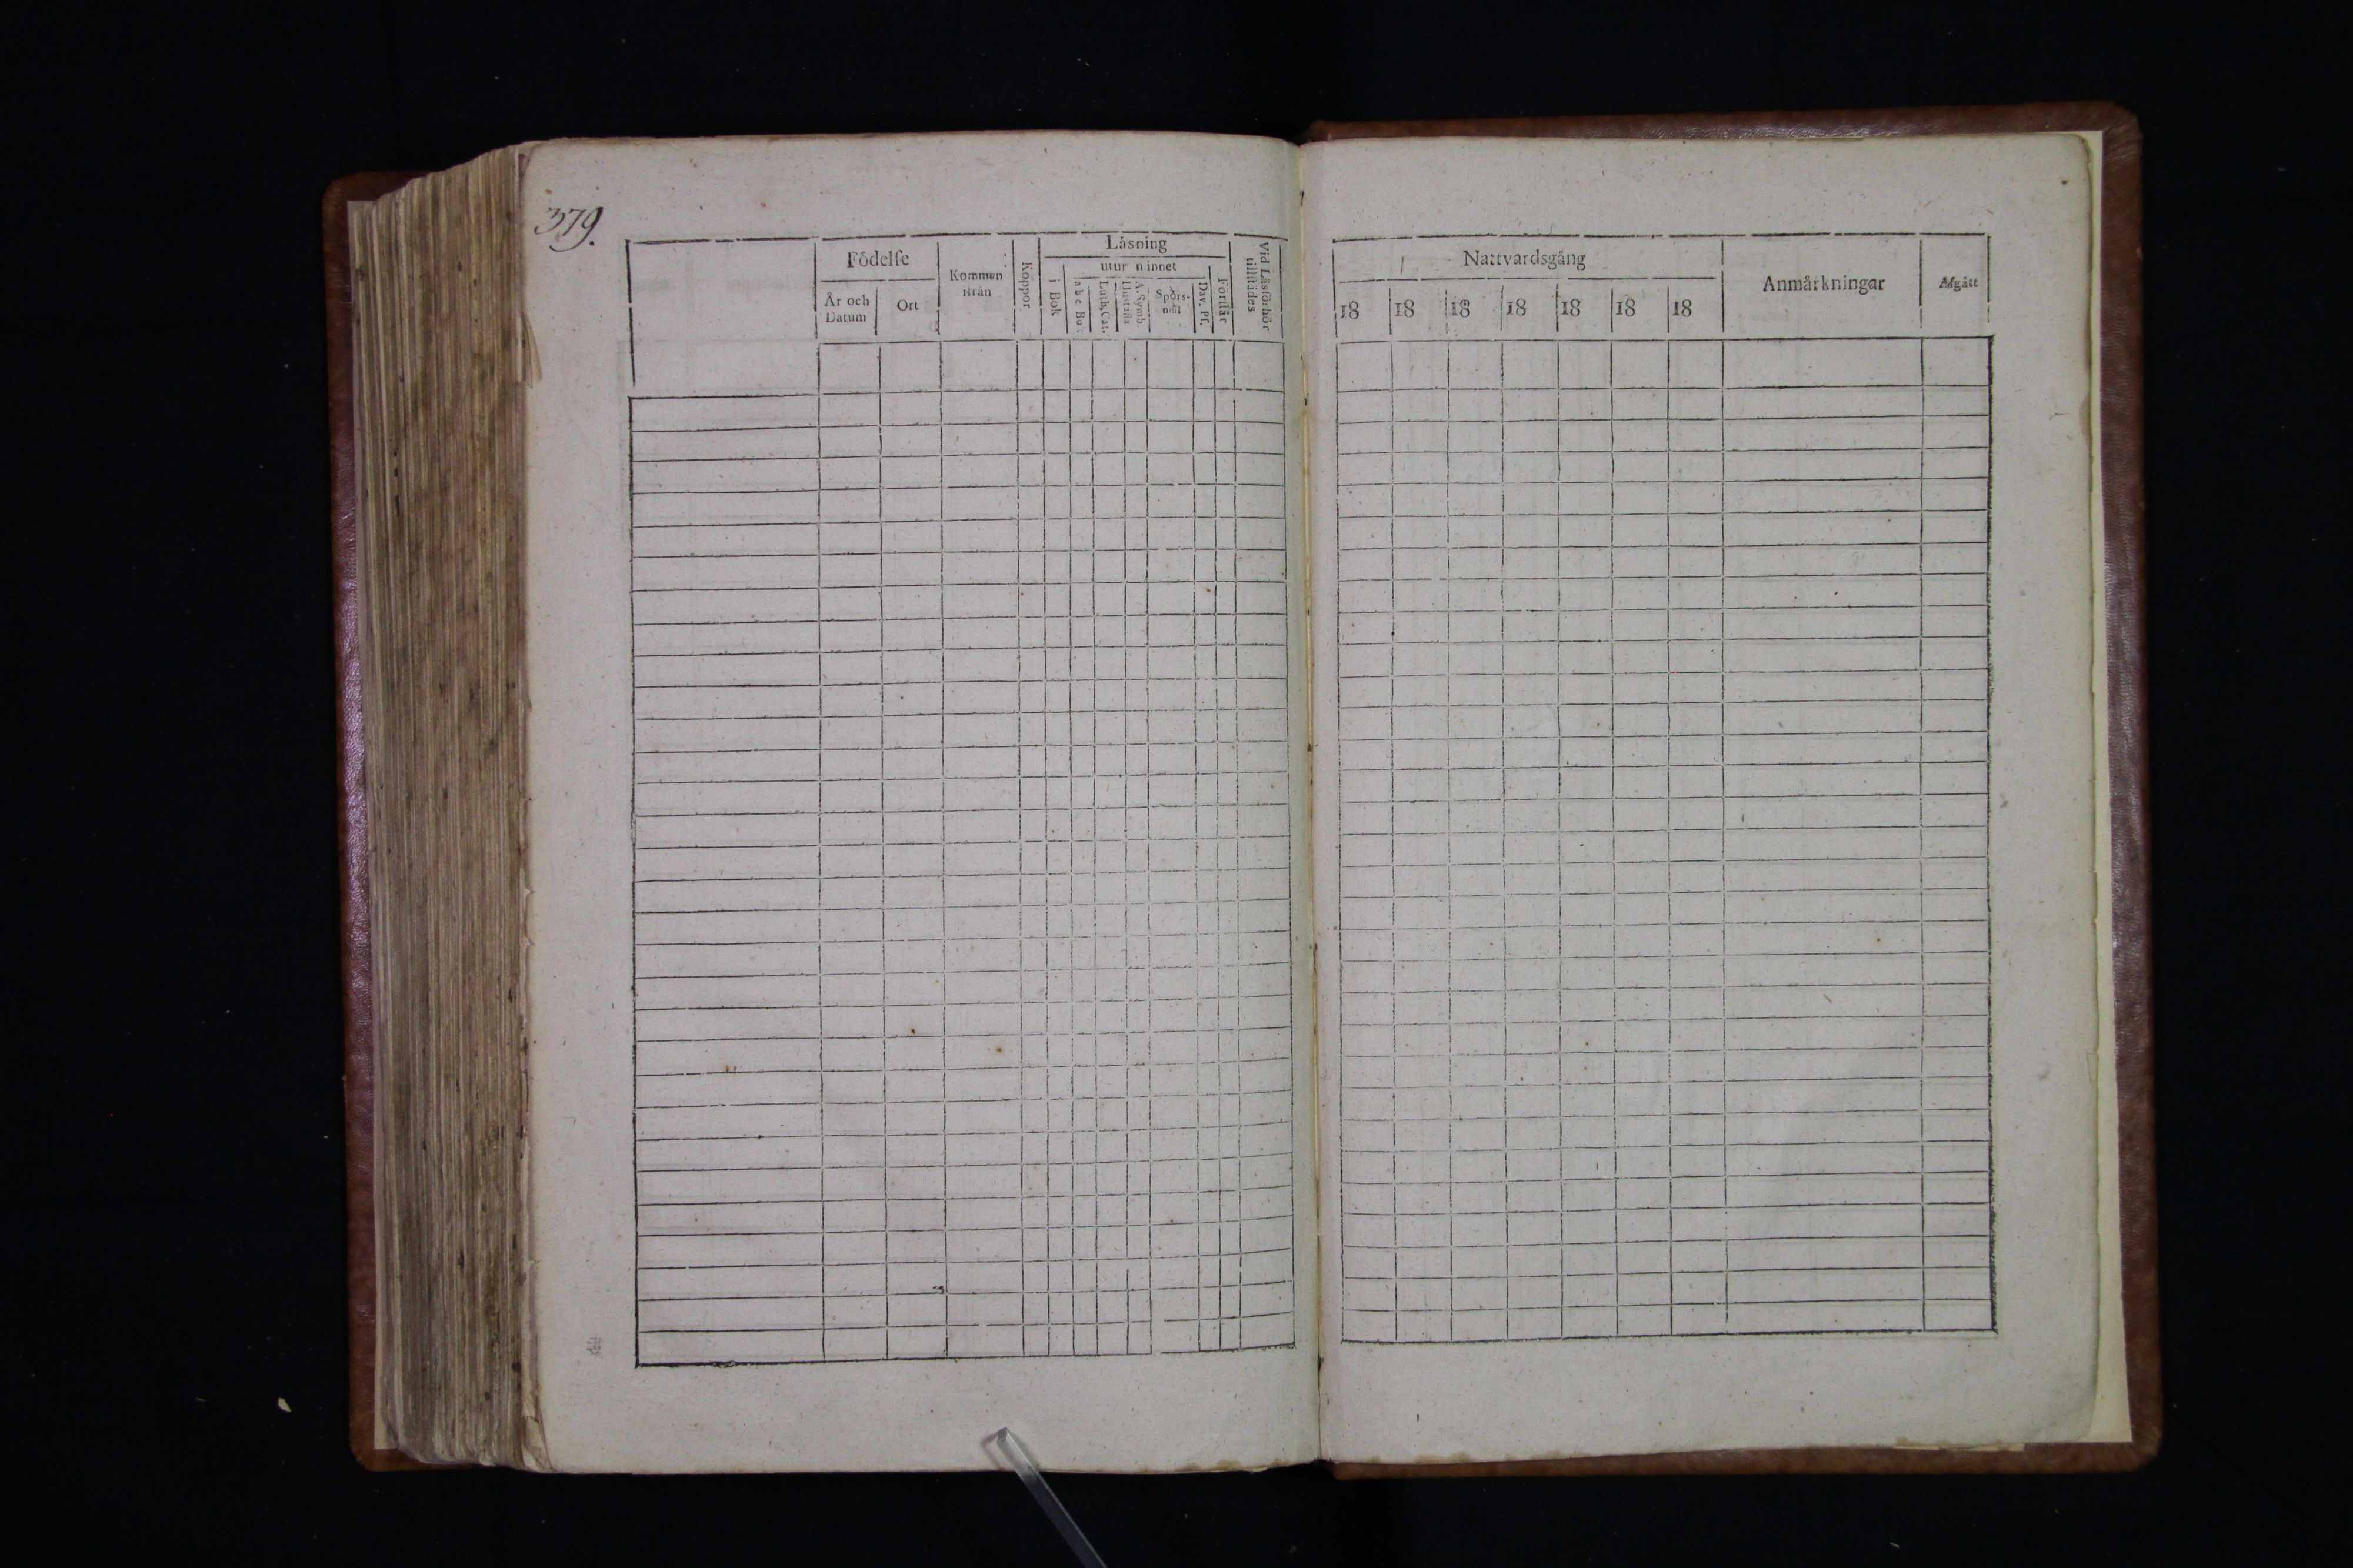 379.
Födelse
År och Datum
Ort
Kommen ifrån
Koppor
Läsning
i Bok
utur minnet
a b c Bok
Luth. Cat.
A. Symb. Hustafla
Spörs-
mål
Dav. Ps.
Förstår
Vid Läsförhör tillstädes
Nattvardsgång
18 18 18 18 18 18 18
Anmärkningar
Afgått